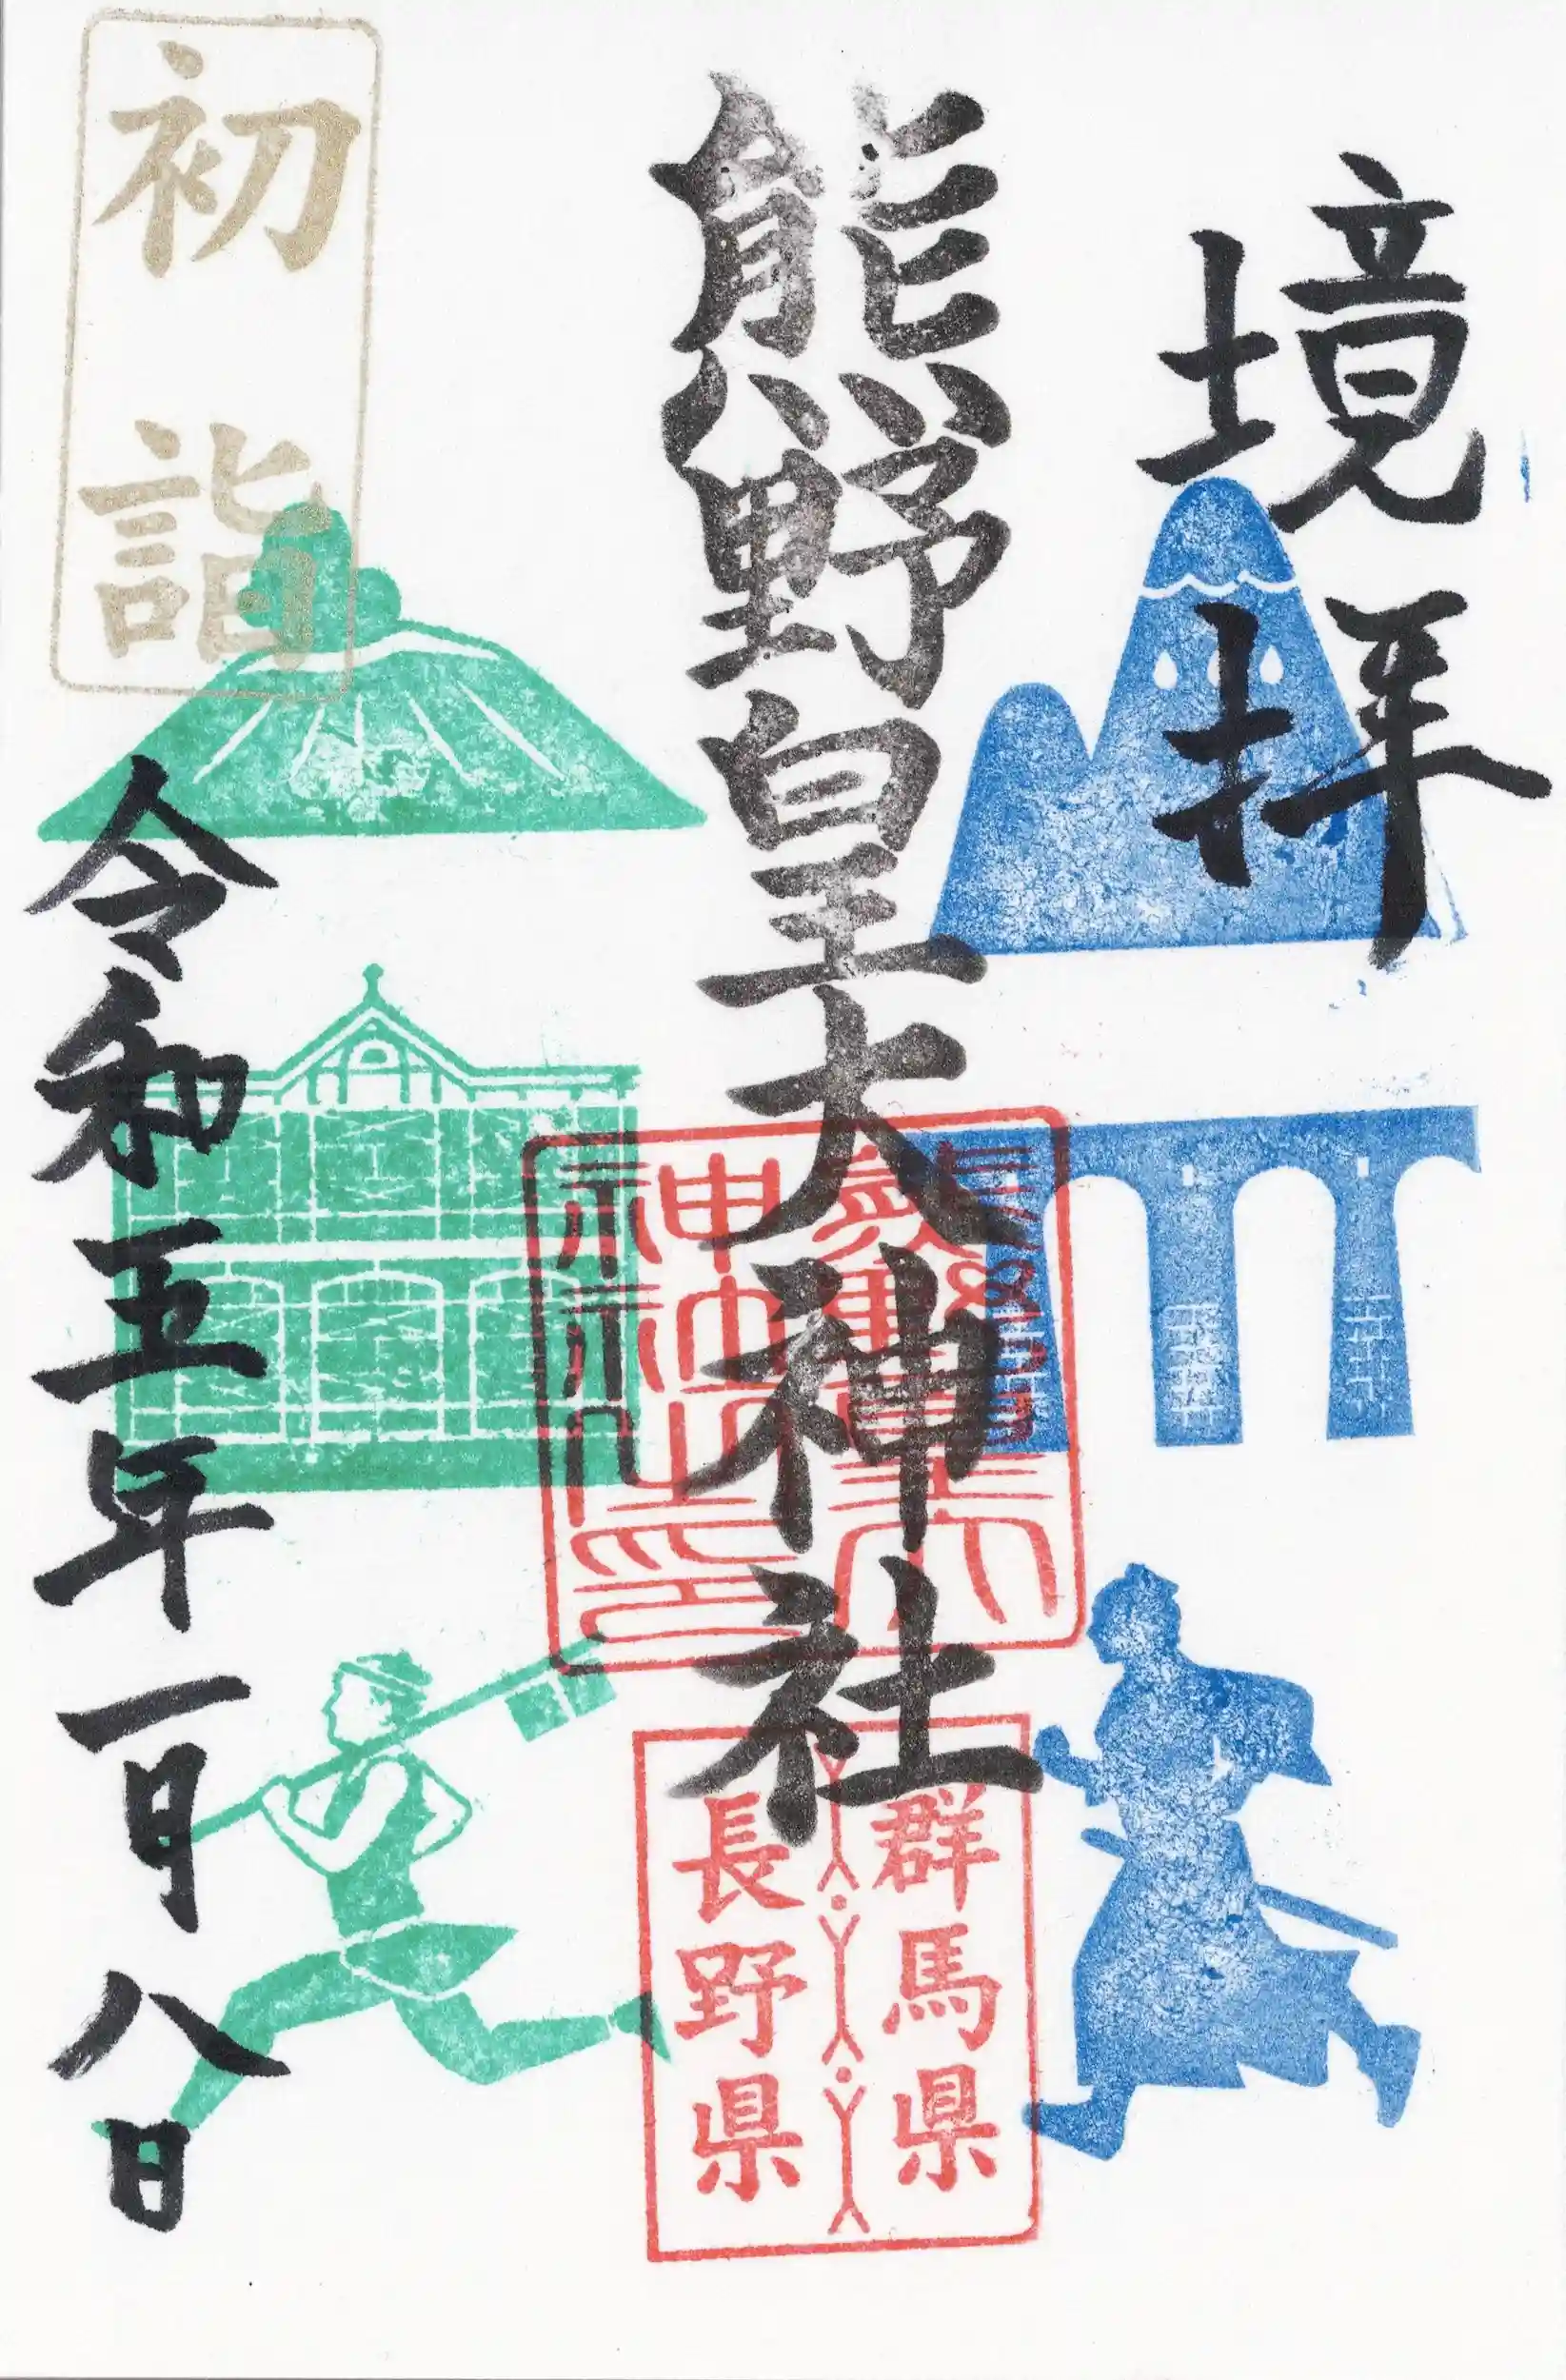 境拝
熊野皇大神社
群馬県
長野県
初詣
令和五年一月八日